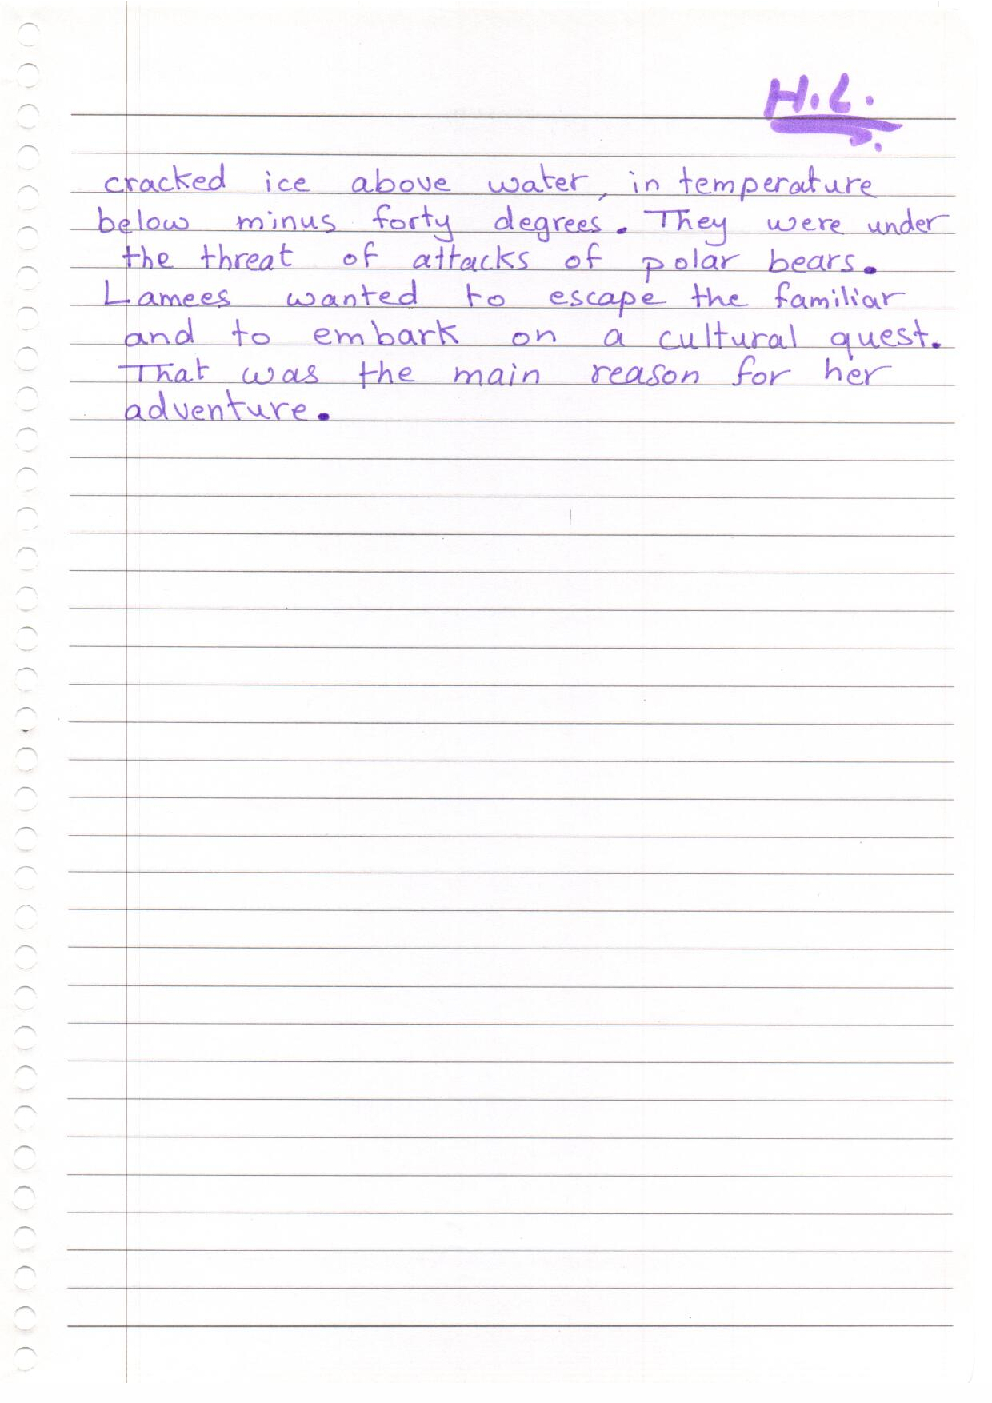 H.L.
cracked ice above water, in temperature
below minus forty degrees. They were under
the threat of attacks of polar bears.
Lamees wanted to escape the familiar
and to embark on a cultural quest.
That was the main reason for her
adventure.